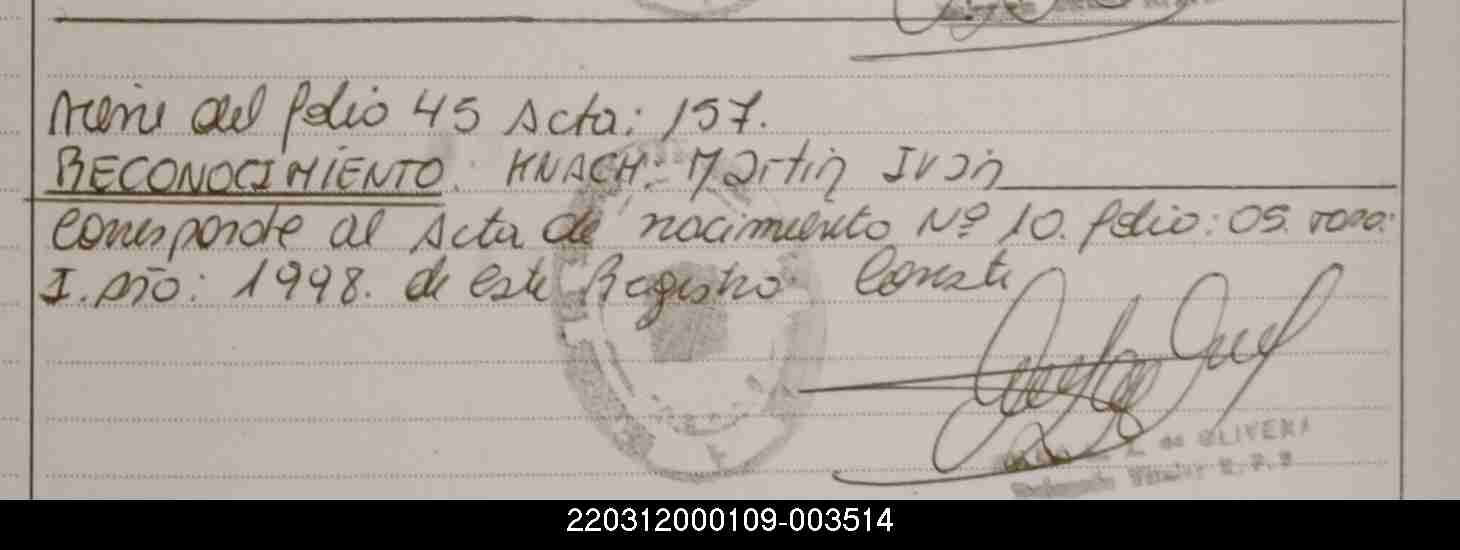 Viene del folio 45 Acta: 157.
RECONOCIMIENTO. HNACH: Martin Ivan
Corresponde al Acta de nacimiento Nº 10. folio: 05. Tomo:
I. Año: 1998. de este Registro Conste
de OLIVERA
220312000109-003514